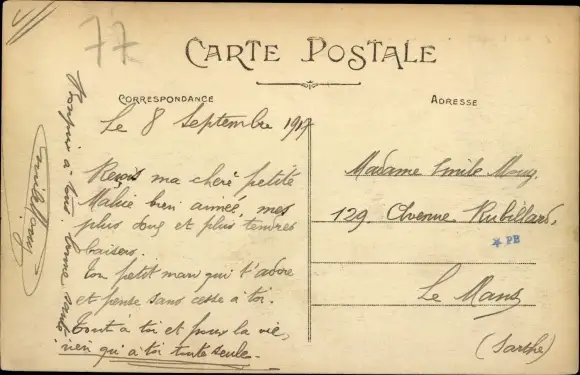 77
CARTE POSTALE
CORRESPONDANCE
ADRESSE
Le 8 Septembre 1917
Reçois ma cheré petite
bien aimée, mes
plus doux et plus tendres
baisers.
Ton petit mari qui t'adore
et pense sans cesse à toi.
Tout à toi et pour la vie,
rien qu'à toi toute seule.
à tout bonne santé
Madame Emile
129. Avenue Rubillard,
PB
Le Mans
(Sarthe)